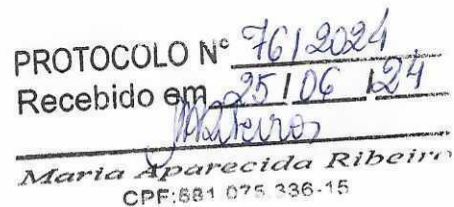 PROTOCOLO Nº 76/2024
Recebido em 25/06/24
Maria Aparecida Ribeiro
CPF:681 075 336-15